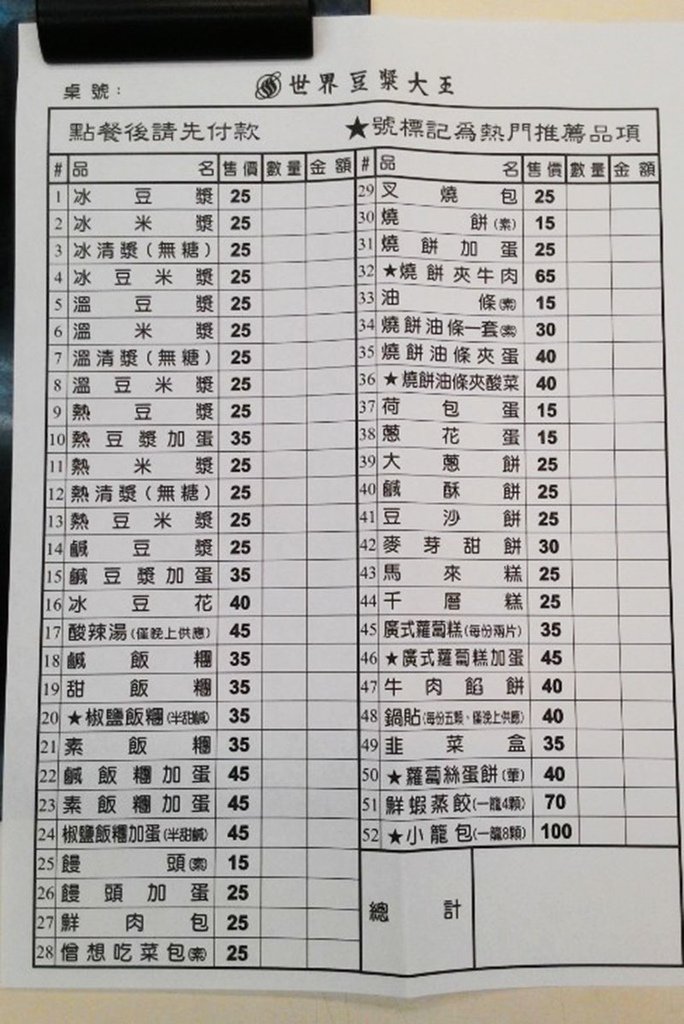 桌號：
世界豆漿大王
點餐後請先付款 ★號標記為熱門推薦品項
# 品名 售價 數量 金額
1 冰豆漿 25
2 冰米漿 25
3 冰清漿(無糖) 25
4 冰豆米漿 25
5 溫豆漿 25
6 溫米漿 25
7 溫清漿(無糖) 25
8 溫豆米漿 25
9 熱豆漿 25
10 熱豆漿加蛋 35
11 熱米漿 25
12 熱清漿(無糖) 25
13 熱豆米漿 25
14 鹹豆漿 25
15 鹹豆漿加蛋 35
16 冰豆花 40
17 酸辣湯(僅晚上供應) 45
18 鹹飯糰 35
19 甜飯糰 35
20 ★椒鹽飯糰(半甜鹹) 35
21 素飯糰 35
22 鹹飯糰加蛋 45
23 素飯糰加蛋 45
24 椒鹽飯糰加蛋(半甜鹹) 45
25 饅頭(素) 15
26 饅頭加蛋 25
27 鮮肉包 25
28 僧想吃菜包(素) 25
# 品名 售價 數量 金額
29 叉燒包 25
30 燒餅(素) 15
31 燒餅加蛋 25
32 ★燒餅夾牛肉 65
33 油條(素) 15
34 燒餅油條一套(素) 30
35 燒餅油條夾蛋 40
36 ★燒餅油條夾酸菜 40
37 荷包蛋 15
38 蔥花蛋 15
39 大蔥餅 25
40 鹹酥餅 25
41 豆沙餅 25
42 麥芽甜餅 30
43 馬來糕 25
44 千層糕 25
45 廣式蘿蔔糕(每份兩片) 35
46 ★廣式蘿蔔糕加蛋 45
47 牛肉餡餅 40
48 鍋貼(每份五顆、僅晚上供應) 40
49 韭菜盒 35
50 ★蘿蔔絲蛋餅(葷) 40
51 鮮蝦蒸餃(一籠4顆) 70
52 ★小籠包(一籠8顆) 100
總計